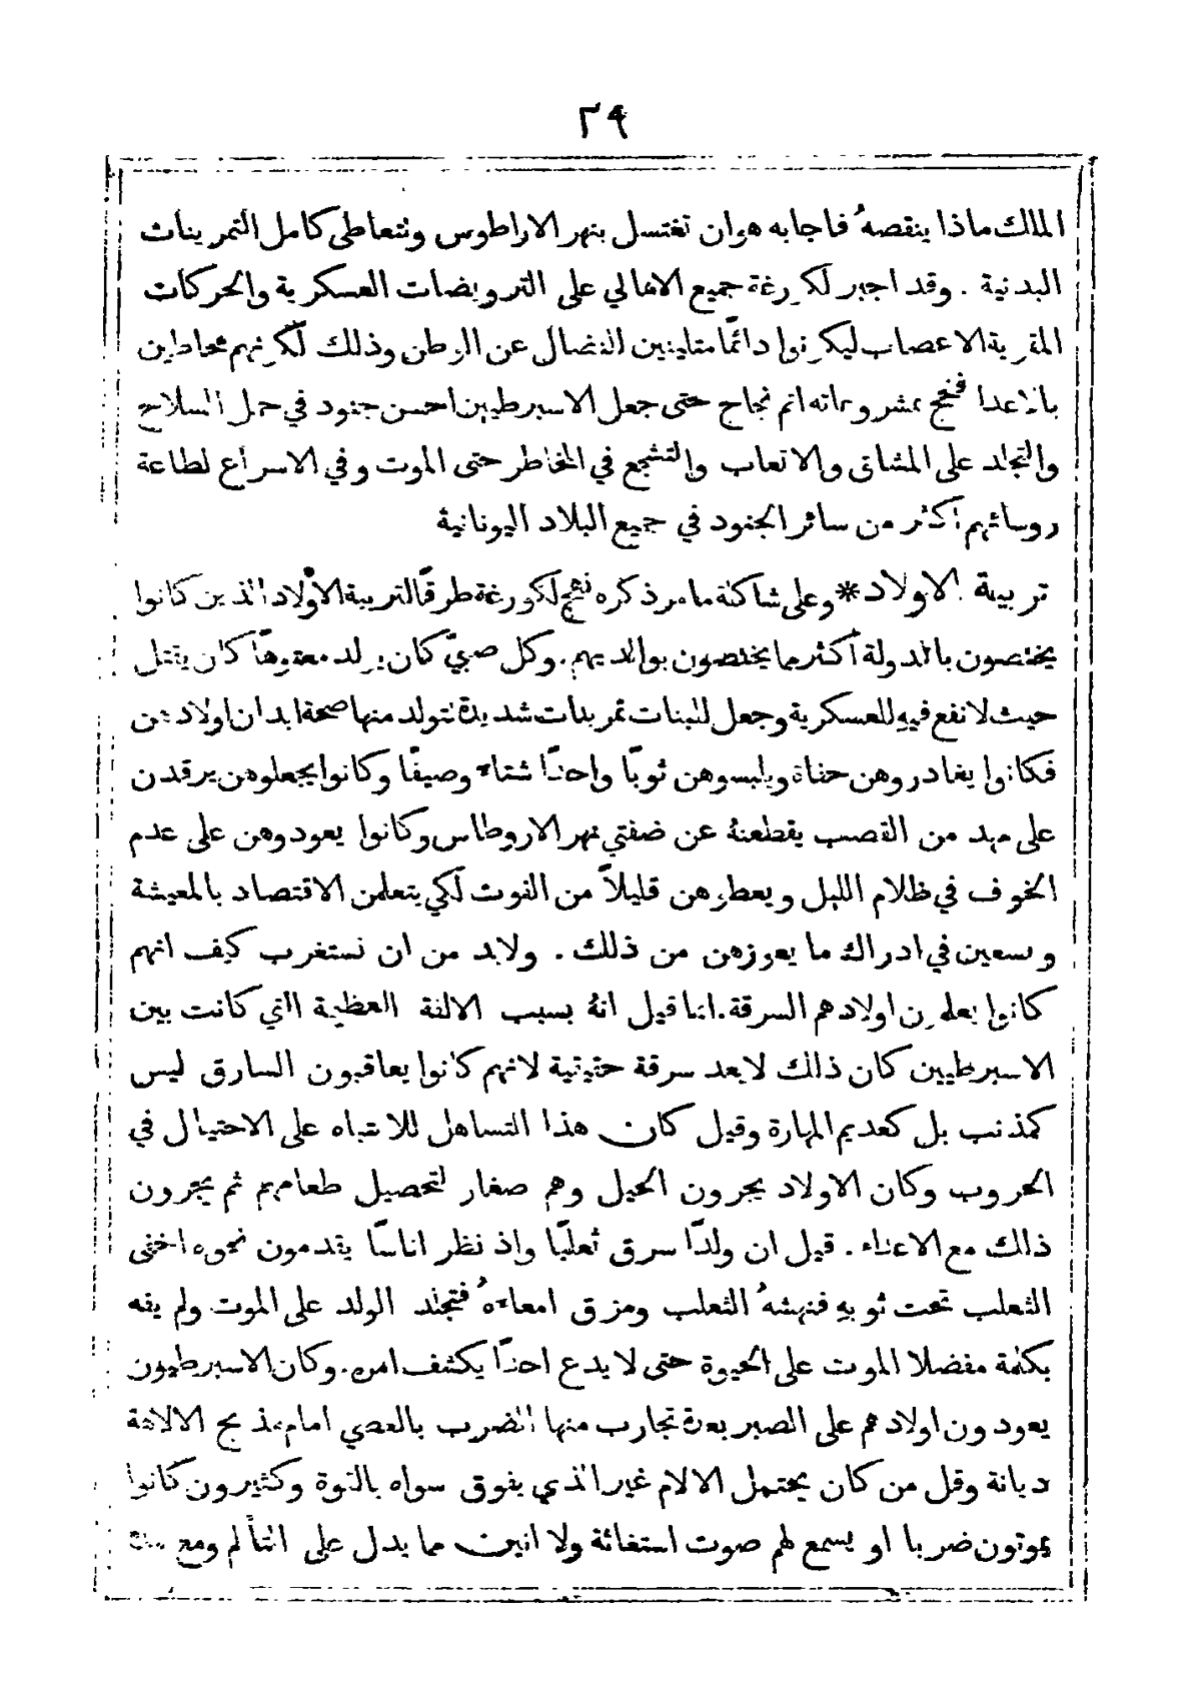 ٣٩
الملك ماذا ينقصهُ فاجابه هوان تغتسل بنهر الاراطوس ونتعاطى كامل التمرينات
البدنية . وقد اجبر لكورغة جميع الاهالي على الترويضات العسكرية والحركات
المقوية الاعصاب ليكونوا دائمًا متاهبين للنضال عن الوطن وذلك لكونهم محاطين
بالاعدا فنجح بمشروعاته اتم نجاح حتى جعل الاسبرطيين احسن جنود في حمل السلاح
والتجلد على المشاق والاتعاب والتشجع في المخاطر حتى الموت وفي الاسراع لطاعة
روسائهم اكثر من سائر الجنود في جميع البلاد اليونانية
تربية الاولاد * وعلى شاكلة ما مر ذكره نهج لكورغة طرقًا لتربية الاولاد الذين كانوا
يختصون بالدولة اكثر مما يختصون بوالديهم . وكل صبيّ كان يولد معتوهًا كان يقتل
حيث لا نفع فيهِ للعسكرية وجعل للبنات تمرينات شديدة لتولد منها صحة ابدان اولادهن
فكانوا يغادروهن حفاة ويلبسوهن ثوبًا واحدًا شتاء وصيفًا وكانوا يجعلوهن يرقدن
على مهد من القصب يقطعنهُ عن ضفتي نهر الاروطاس وكانوا يعودوهن على عدم
الخوف في ظلام الليل ويعطوهن قليلاً من القوت لكي يتعلمن الاقتصاد بالمعيشة
ويسعين في ادراك ما يعوزهن من ذلك . ولابد من ان نستغرب كيف انهم
كانوا يعلمون اولادهم السرقة . انما قيل انهُ بسبب الالفة العظيمة التي كانت بين
الاسبرطيين كان ذلك لايعد سرقة حقيقية لانهم كانوا يعاقبون السارق ليس
كمذنب بل كعديم المهارة وقيل كان هذا التساهل للانتباه على الاحتيال في
الحروب وكان الاولاد يجرون الحيل وهم صغار لتحصيل طعامهم ثم يجرون
ذلك مع الاعداء . قيل ان ولدًا سرق ثعلبًا واذ نظر اناسًا يقدمون نحوه اخفى
الثعلب تحت ثوبهِ فنهشهُ الثعلب ومزق امعاءهُ فتجلد الولد على الموت ولم يفه
بكلمة مفضلا الموت على الحيوة حتى لا يدع احدًا يكشف امره . وكان الاسبرطيون
يعودون اولادهم على الصبر بعدة تجارب منها الضرب بالعصي امام مذبح الالاهة
ديانة وقل من كان يحتمل الالام غير الذي يفوق سواه بالقوة وكثيرون كانوا
يموتون ضربا او يسمع لهم صوت استغاثة ولا انين مما يدل على التألم ومع